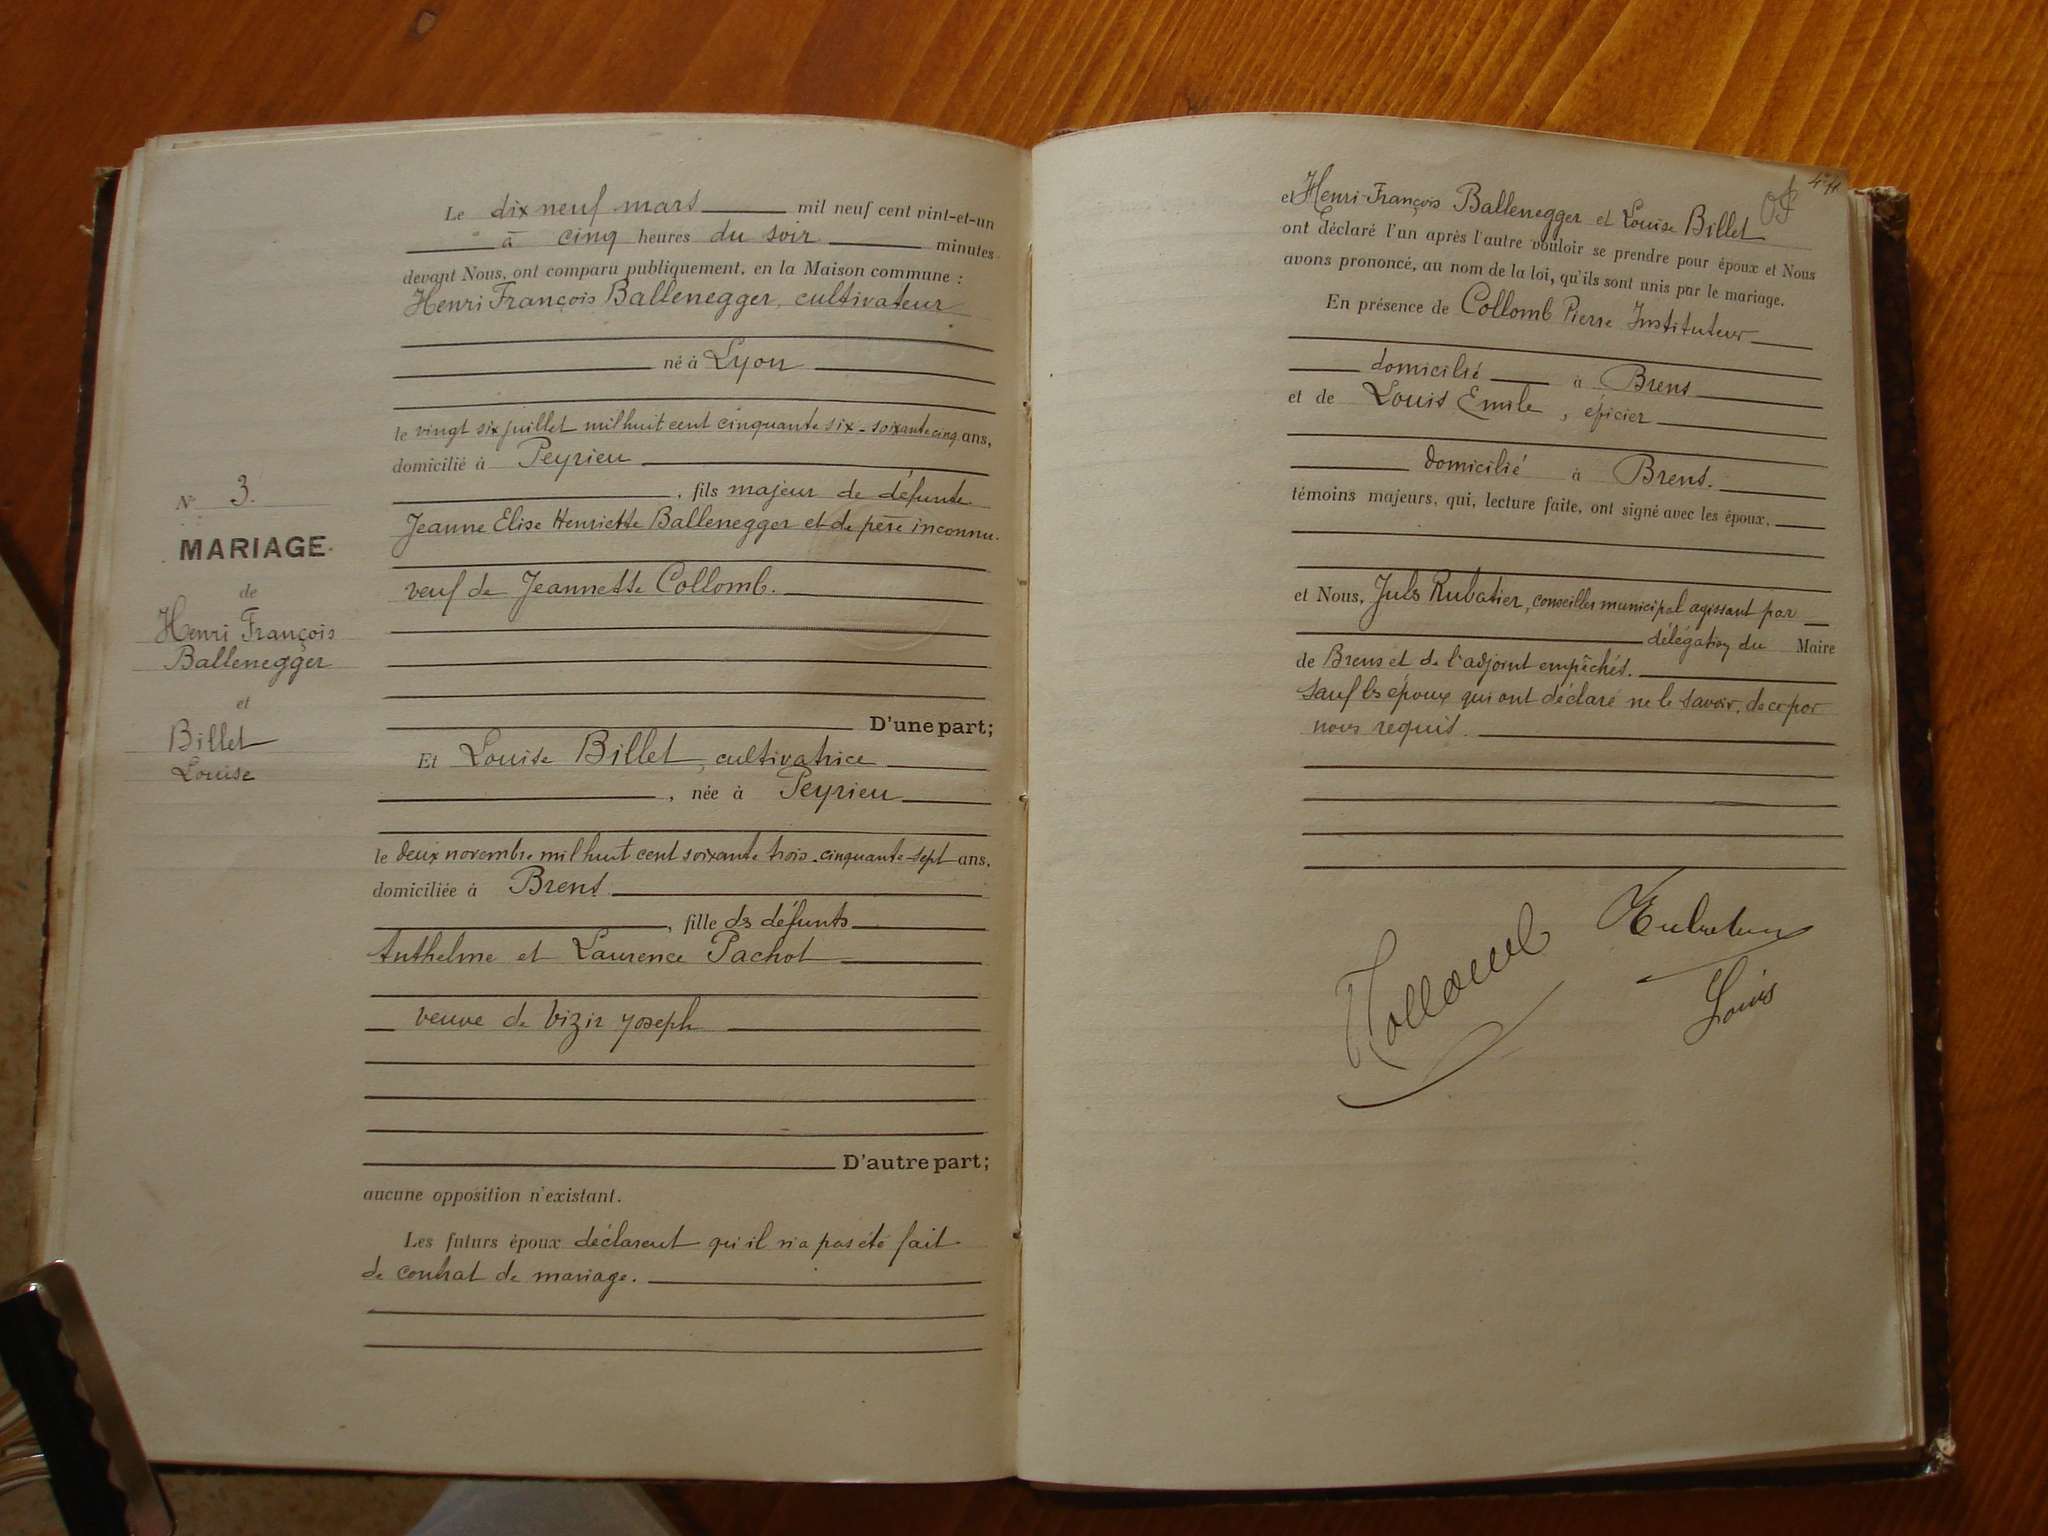 Le dix neuf mars mil neuf cent vint-et-un
à cinq heures du soir minutes
devant Nous, ont comparu publiquement, en la Maison commune :
Henri François Ballenegger, cultivateur
né à Lyon
le vingt six juillet mil huit cent cinquante six - soixante cinq ans,
domicilié à Peyrieu
, fils majeur de défunte
Jeanne Elise Henriette Ballenegger et de père inconnu.
veuf de Jeannette Collomb.
D'une part;
Et Louise Billet, cultivatrice
, née à Peyrieu
le deux novembre mil huit cent soixante trois - cinquante-sept ans,
domiciliée à Brens
, fille des défunts
Anthelme et Laurence Pachot
veuve de Vizir Joseph
D'autre part;
aucune opposition n'existant.
Les futurs époux déclarent qu'il n'a pas été fait
de contrat de mariage.
N° 3.
MARIAGE
de
Henri François
Ballenegger
et
Billet
Louise
et Henri-François Ballenegger et Louise Billet
ont déclaré l'un après l'autre vouloir se prendre pour époux et Nous
avons prononcé, au nom de la loi, qu'ils sont unis par le mariage.
En présence de Collomb Pierre Instituteur
domicilié à Brens
et de Louis Emile, épicier
domicilié à Brens.
témoins majeurs, qui, lecture faite, ont signé avec les époux,
et Nous, Jules Rubatier, conseiller municipal agissant par
délégation du Maire
de Brens et de l'adjoint empêchés.
sauf les époux qui ont déclaré ne le savoir, de ce par
nous requis.
Collomb
Rubatier
Louis